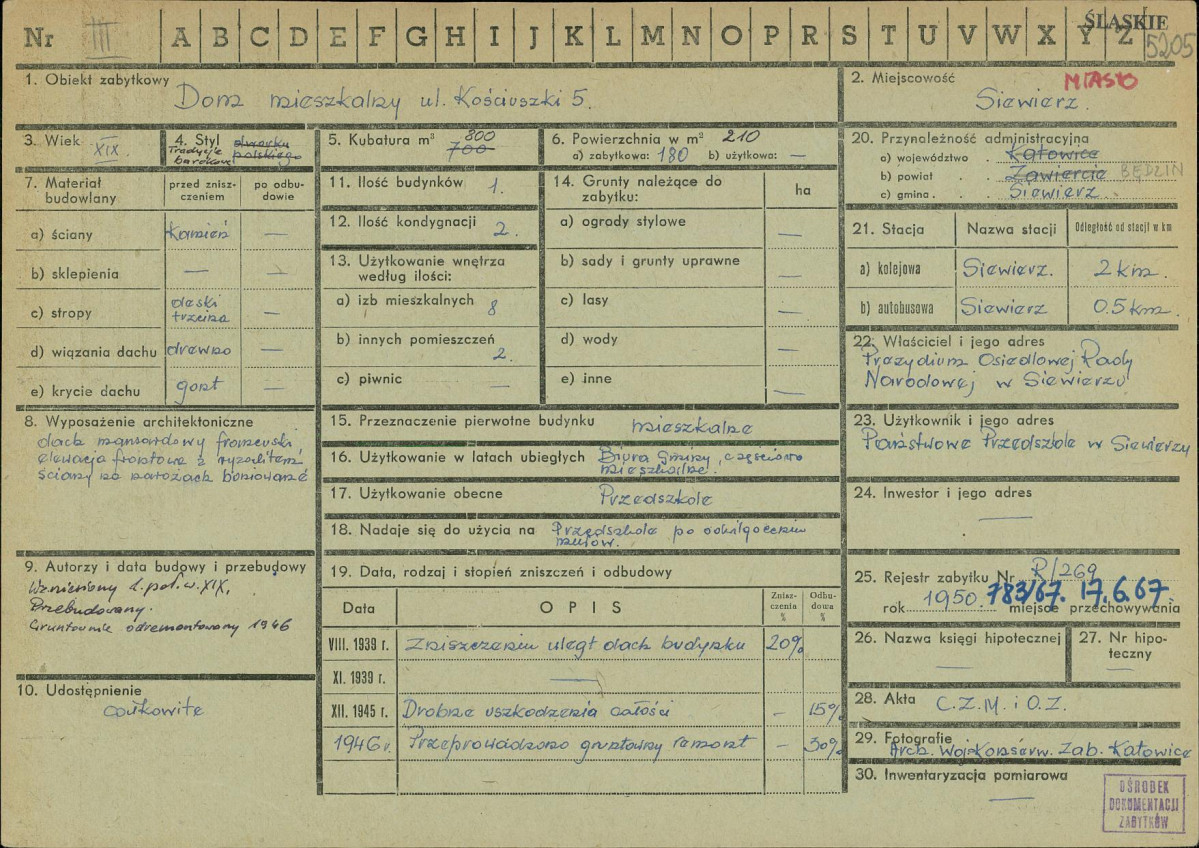 Nr III A B C D E F G H I J K L M N O P R S T U V W X Y Z ŚLĄSKIE
5205
1. Obiekt zabytkowy Dom mieszkalny ul. Kościuszki 5.
2. Miejscowość MIASTO
Siewierz
3. Wiek XIX.
4. Styl dworku polskiego
Tradycje barokowe
5. Kubatura m³ 800
700
6. Powierzchnia w m² 210
a) zabytkowa: 180 b) użytkowa: —
20. Przynależność administracyjna
a) województwo . Katowice
b) powiat . . Zawiercie BĘDZIN
c) gmina . . . Siewierz
7. Materiał budowlany
przed zniszczeniem
po odbudowie
a) ściany kamień —
b) sklepienia — —
c) stropy deski trzcina —
d) wiązania dachu drewno —
e) krycie dachu gont —
11. Ilość budynków 1.
12. Ilość kondygnacji 2.
13. Użytkowanie wnętrza
według ilości:
a) izb mieszkalnych 8
b) innych pomieszczeń
2.
c) piwnic —
14. Grunty należące do
zabytku:
ha
a) ogrody stylowe —
b) sady i grunty uprawne —
c) lasy —
d) wody —
e) inne —
21. Stacja Nazwa stacji Odległość od stacji w km
a) kolejowa Siewierz. 2 km.
b) autobusowa Siewierz 0.5 km
22. Właściciel i jego adres
Prezydium Osiedlowej Rady
Narodowej w Siewierzu
8. Wyposażenie architektoniczne
dach mansardowy francuski
elewacja frontowa z ryzalitem
ściany na narożach boniowane
15. Przeznaczenie pierwotne budynku mieszkalne
16. Użytkowanie w latach ubiegłych Biura Gminy, częściowo
mieszkalne.
17. Użytkowanie obecne Przedszkole
18. Nadaje się do użycia na Przedszkole po odwilgoceniu
murów.
23. Użytkownik i jego adres
Państwowe Przedszkole w Siewierzy
24. Inwestor i jego adres
—
9. Autorzy i data budowy i przebudowy
Wzniesiony 1. poł. w. XIX,
Przebudowany.
Gruntownie odremontowany 1946
10. Udostępnienie
całkowite
19. Data, rodzaj i stopień zniszczeń i odbudowy
Data OPIS Zniszczenia % Odbudowa %
VIII. 1939 r. Zniszczeniu uległ dach budynku 20%
XI. 1939 r. —
XII. 1945 r. Drobne uszkodzenia całości — 15%
1946 r. Przeprowadzono gruntowny remont — 30%
25. Rejestr zabytku Nr R/269
rok 1950. 783/67. 17.6.67.
miejsce przechowywania
26. Nazwa księgi hipotecznej
—
27. Nr hipoteczny
—
28. Akta C.Z.M. i O.Z.
29. Fotografie
Arch. Woj. Konserw. Zab. Katowice
30. Inwentaryzacja pomiarowa
—
OŚRODEK
DOKUMENTACJI
ZABYTKÓW